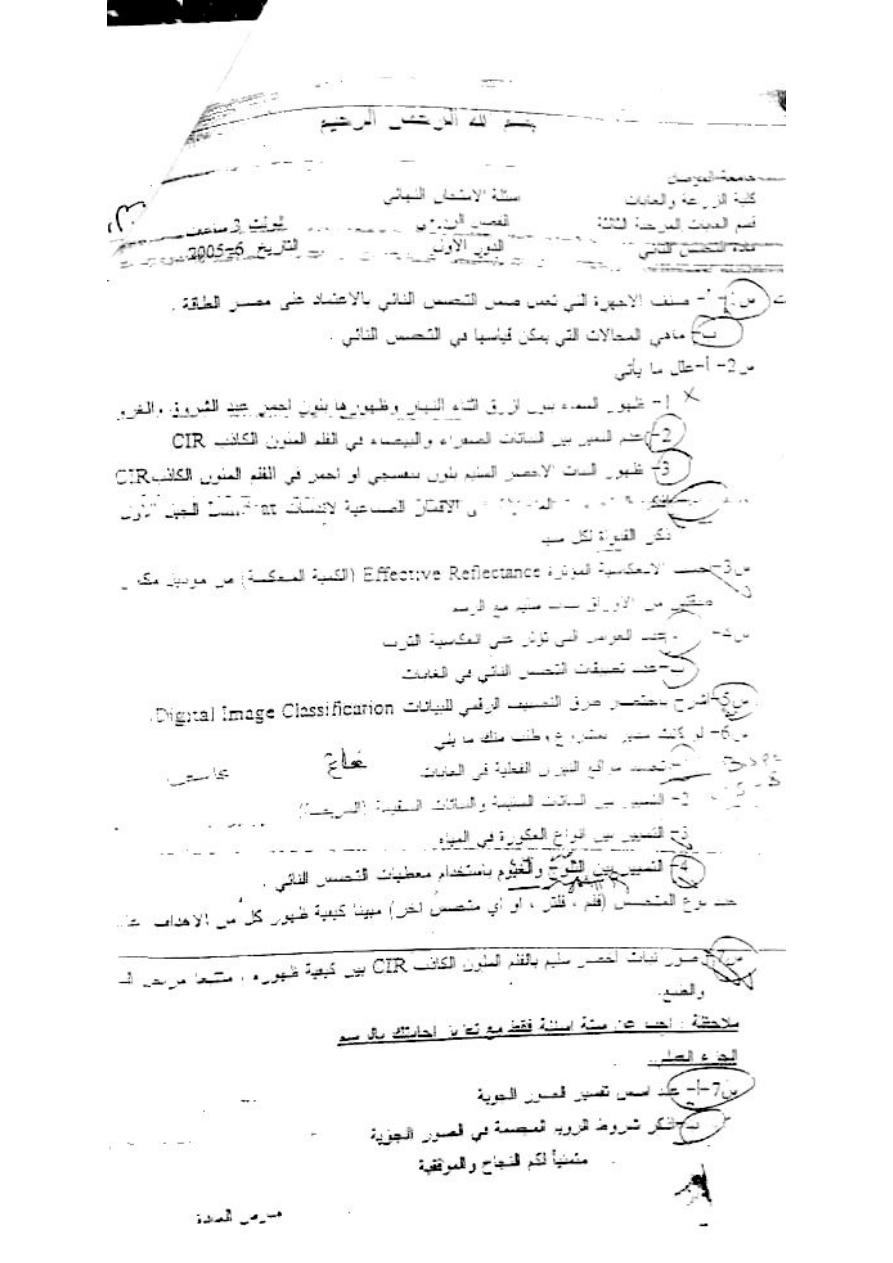 بسم الله الرحمن الرحيم
جامعة الموصل
كلية الزراعة والغابات
اسئلة الامتحان النهائي
قسم الغابات المرحلة الثالثة
الفصل
الوقت 3 ساعات
مادة التحسس النائي
الدور الاول
التاريخ 6-2005
س1- أ- صنف الاجهزة التي تعمل ضمن التحسس النائي بالاعتماد على مصدر الطاقة .
ب- ماهي المجالات التي يمكن قياسها في التحسس النائي .
س2- أ-علل ما يأتي
1- ظهور السماء بلون ازرق اثناء النهار وظهورها بلون احمر عند الشروق والغرو
2- عدم التمييز بين النباتات الصفراء والبيضاء في الفلم الملون الكاذب CIR
3- ظهور النبات الاخضر السليم بلون بنفسجي او احمر في الفلم الملون الكاذب CIR
الاقمار الصناعية لاندسات الجيل الاول
ذكر القنواة لكل
س3- احسب الانعكاسية المؤثرة Effective Reflectance (الكمية المنعكسة) من موديل مكون
من الاوراق نبات سليم مع الرسم
س4- أ- عدد العوامل التي تؤثر على انعكاسية الترب
ب- عدد تطبيقات التحسس النائي في الغابات
س5- اشرح باختصار طرق التصنيف الرقمي للبيانات Digital Image Classification.
س6- لو كنت مدير لمشروع وطلب منك ما يلي
1- تحديد مواقع النيران الفعلية في الغابات
2- التمييز بين النباتات السليمة والنباتات السقيمة (المريضة)
3- التمييز بين انواع العكورة في المياه
4- التمييز بين الثلوج والغيوم باستخدام معطيات التحسس النائي .
حدد نوع المتحسس (فلم ، فلتر ، او أي متحسس اخر) مبينا كيفية ظهور كل من الاهداف
س7- صور نبات اخضر سليم بالفلم الملون الكاذب CIR بين كيفية ظهوره ،
والطبع.
ملاحظة : اجب عن ستة اسئلة فقط مع تعزيز اجابتك بالرسم
الجزء العملي
س7-أ- عدد اسس تفسير الصور الجوية
ب- اذكر شروط الرؤية المجسمة في الصور الجوية
متمنياً لكم النجاح والموفقية
مدرس المادة